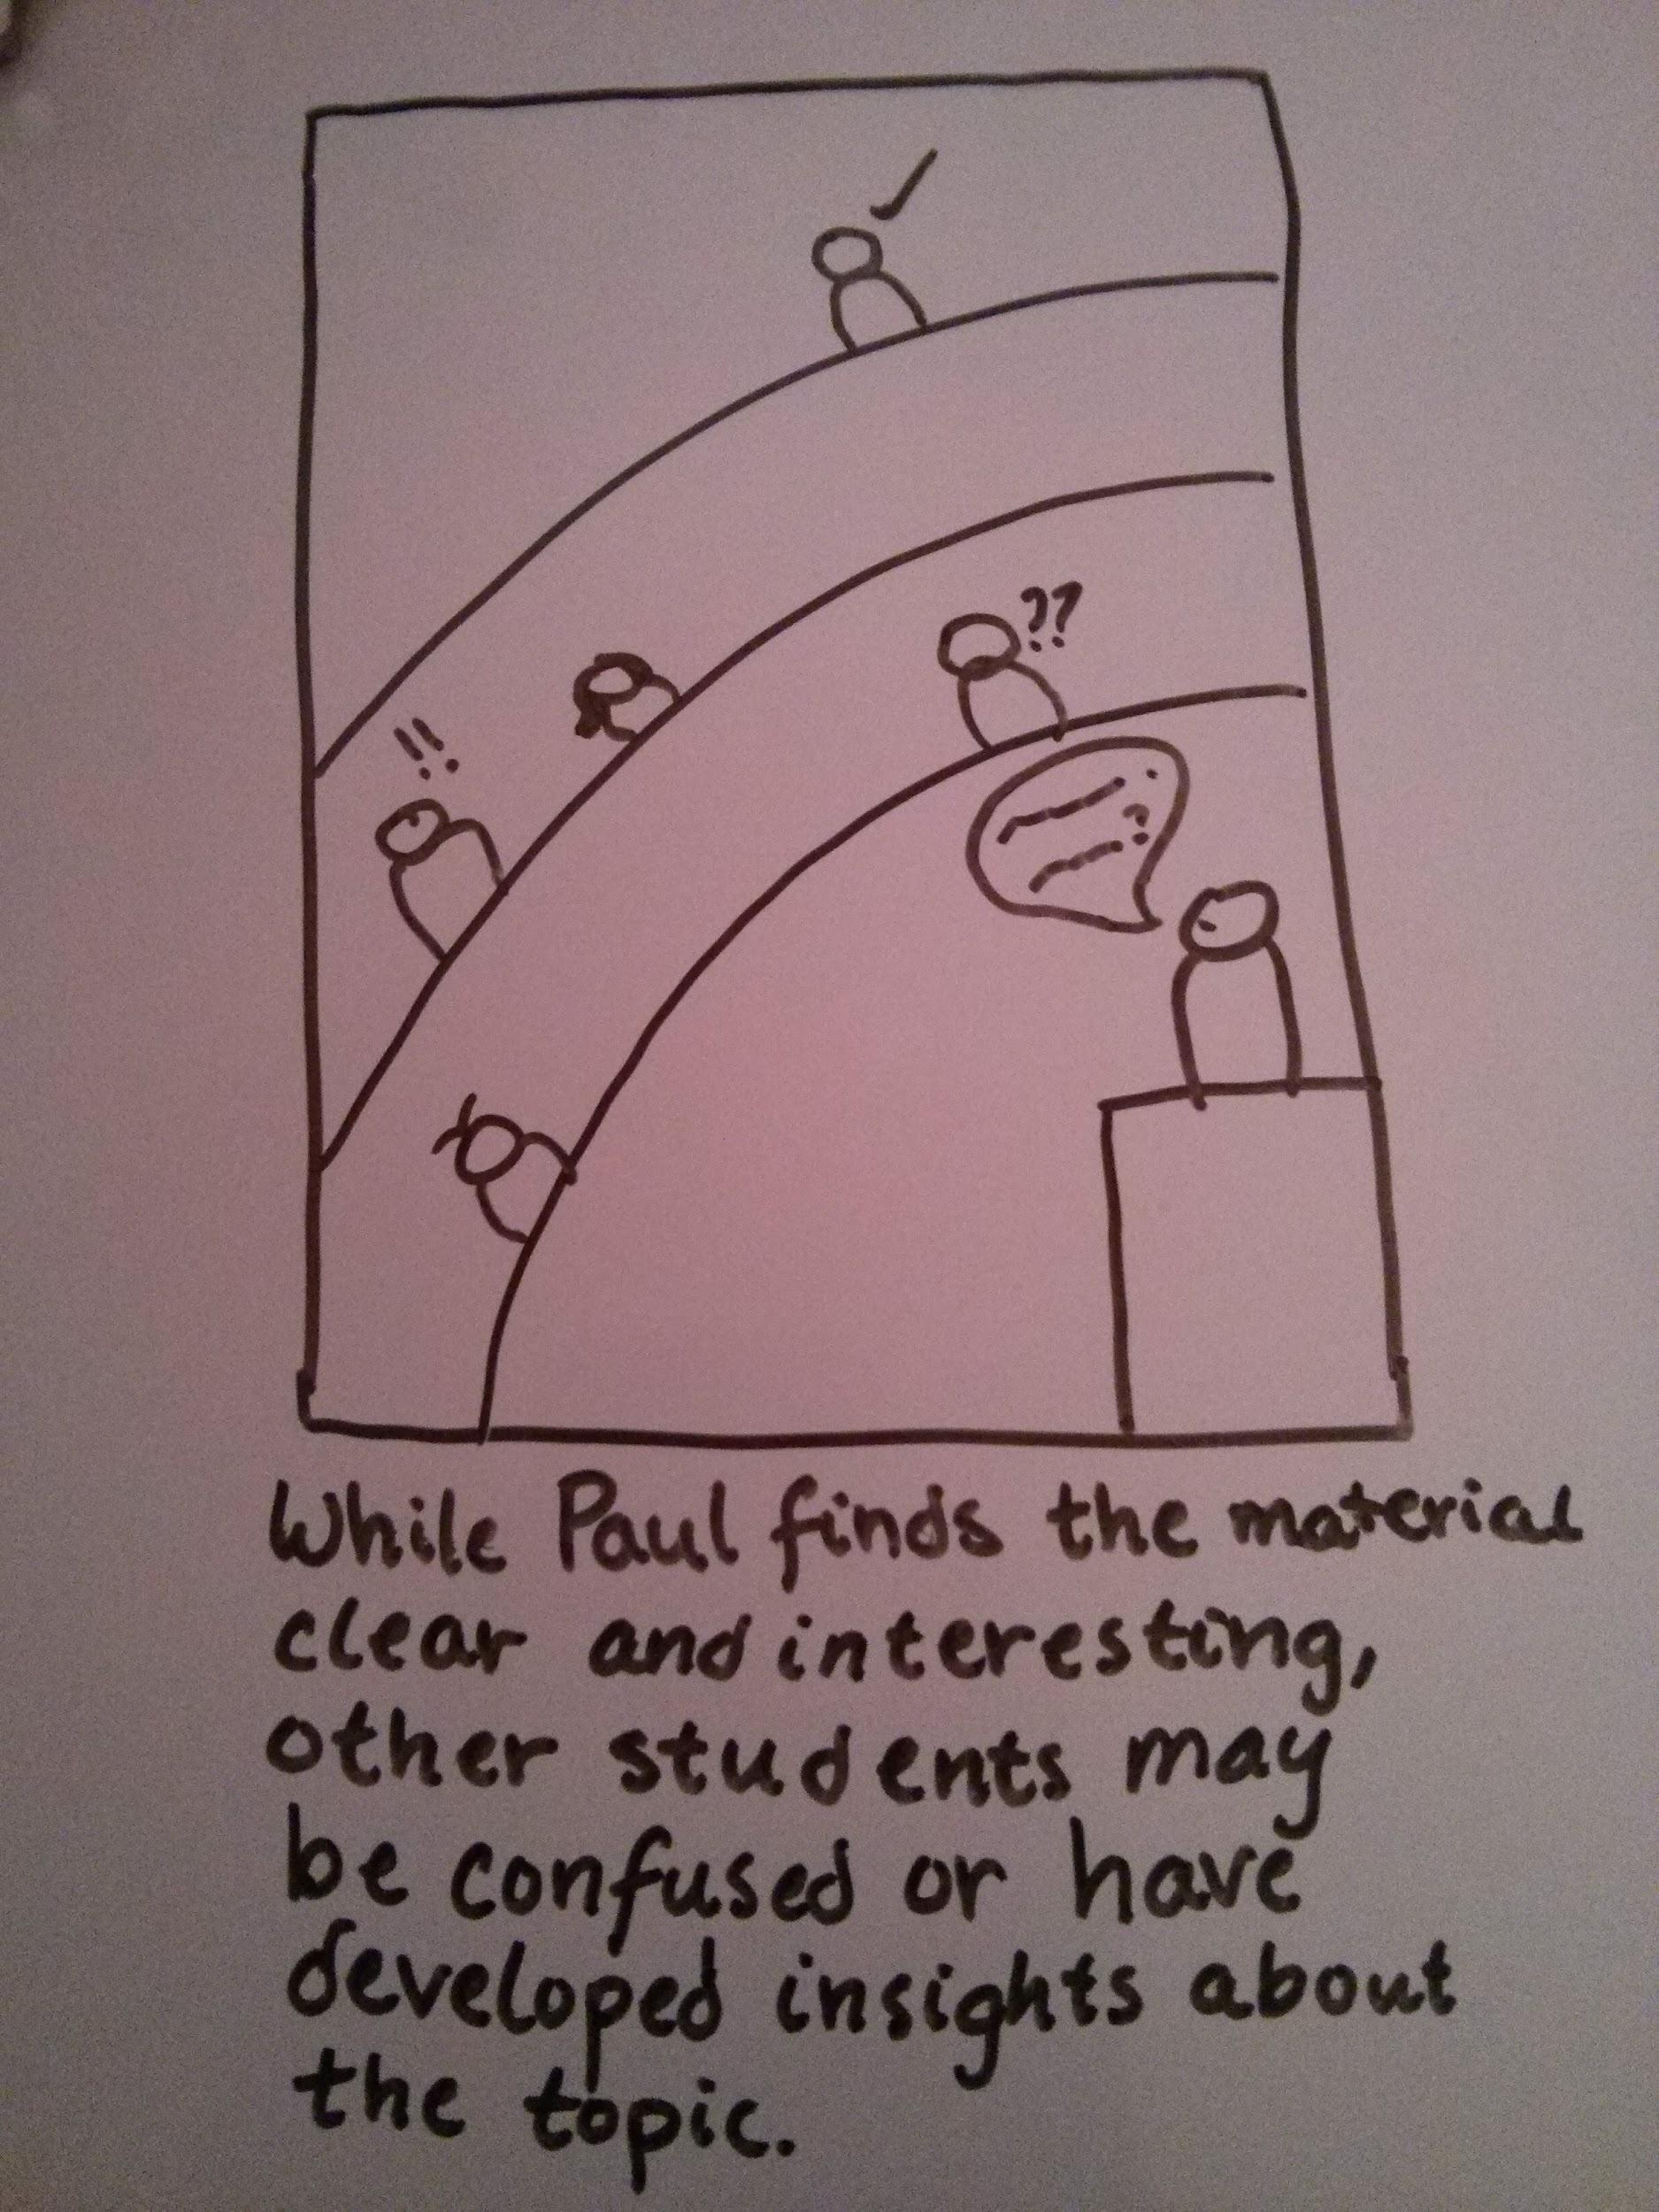 !!
??
While Paul finds the material
clear and interesting,
other students may
be confused or have
developed insights about
the topic.